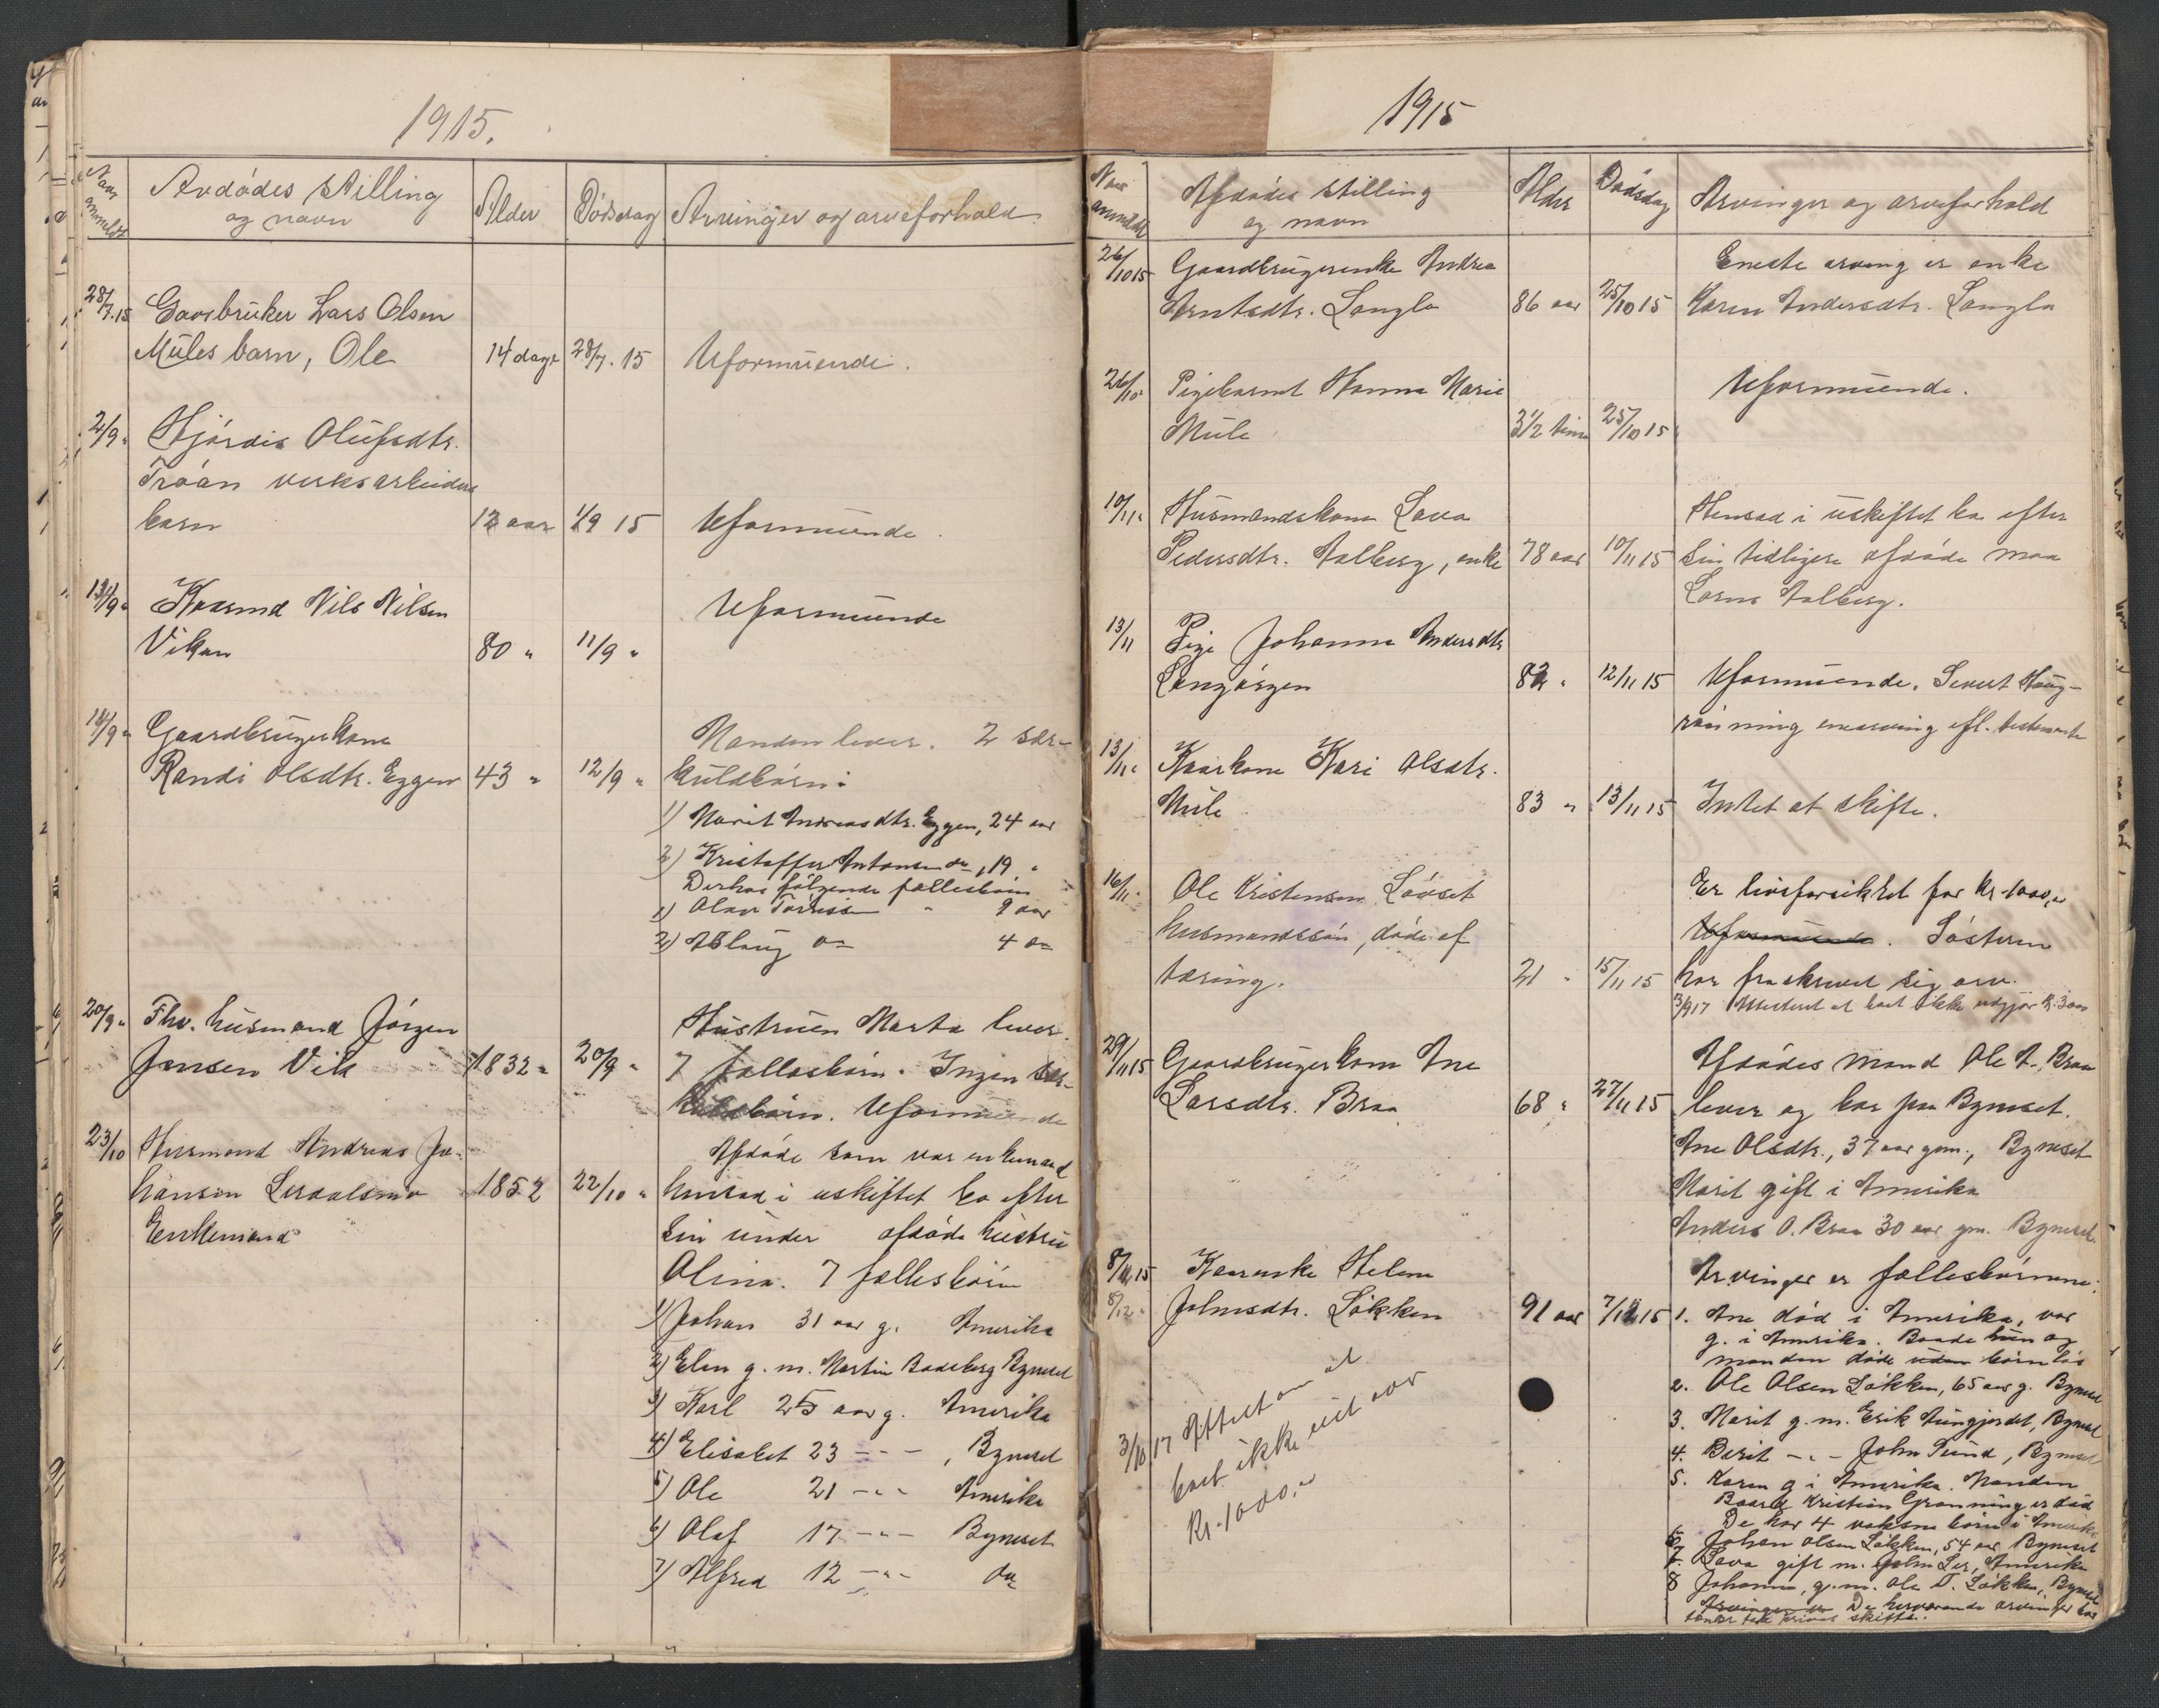 1915.
Naar anmeldt
Avdødes stilling
og navn
Alder
Dødsdag
Arvinger og arveforhold
28/7.15
Gaarbruker Lars Olsen
Mules barn, Ole
14 dage
28/7. 15
Uformuende.
2/9 "
Hjørdis Olufsdtr.
Trøan verksarbeiders
barn
12 aar
1/9 15
Uformuende.
13/9 "
Kaarmd Nils Nilsen
Vikan
80 "
11/9 "
Uformuende
14/9 "
Gaardbrugerkone
Randi Olsdtr. Eggen
43 "
12/9 "
Manden lever. 2 sær-
kuldbørn:
1) Marit Andreasdtr. Eggen, 24 aar
2) Kristoffer Antonsen do, 19 "
Derhos følgende fællesbørn
1) Olav " 9 aar
2) Aslaug do 4 do
20/9 "
Fhv. husmand Jørgen
Jensen Vik
1832 "
20/9 "
Hustruen Marta lever.
7 fællesbørn. Ingen sær-
kuldbørn. Uformuende
23/10
Husmand Andreas Jo-
hansen Lerdalsmo
Enkemand
1852
22/10 "
Afdøde som var enkemand
hensad i uskiftet bo efter
sin under afdøde hustru
Olina. 7 fællesbørn
1) Johan 31 aar g. Amerika
2) Elen g. m. Martin Bodsberg Bynesset
3) Karl 25 aar g. Amerika
4) Elisabet 23 - - - , Bynesset
5) Ole 21 - " - Amerika
6) Olaf 17 - " - Bynesset
7) Alfred 12 - " - do
1915
Naar anmeldt
Afdødes stilling
og navn
Alder
Dødsdag
Arvinger og arveforhold
26/10 15
Gaardbrugerenke Andrea
Arntsdtr. Langlo
86 aar
25/10 15
Eneste arving er enke
Karen Andersdtr. Langlo
26/10
Pigebarnet Hanna Marie
Mule
3 1/2 time
25/10 15
Uformuende.
10/11 "
Husmandskone Lava
Pedersdtr. Aalberg, enke
78 aar
10/11 15
Hensad i uskiftet bo efter
sin tidligere afdøde man
Lorns Aalberg.
13/11
Pige Johanna Andersdtr
Langørgen
82 "
12/11 15
Uformuende. Sivert Haug-
rønning enearving efl. testamente
13/11 "
Kaarkone Kari Olsdtr.
Mule
83 "
13/11 15
Intet at skifte.
16/11 "
Ole Kristensen Løvset
husmandssøn, døde af
tæring.
21 "
15/11 15
Er livsforsikret for kr. 1000,-
Uformuende. Søsteren
har fraskrevet sig arv.
3/9 17 Attesteret at boet ikke udgjør kr. 300
29/11 15
Gaardbrugerkone Ane
Larsdtr. Braa
68 "
27/11 15
Afdødes mand Ole A. Braa
lever og bor paa Bynesset.
Ane Olsdtr., 37 aar gm., Bynesset
Marit gift i Amerika
Anders O. Braa 30 aar gm. Bynesset.
8/12 15
8/12 "
Kaarenke Helena
Johnsdtr. Løkken
91 aar
7/12 15
Arvinger er fællesbørnene:
1. Ane død i Amerika, var
g. i Amerika. Baade hun og
manden døde uden barnløs
2. Ole Olsen Løkken, 65 aar g. Bynesset
3. Marit g. m. Erik Aungjerdet, Bynesset
4. Berit - " - John Sund, Bynesset
5. Karen g i Amerika. Manden
Baard Kristian Grønning er død
De har 4 voksne børn i Amerika
6. Johan Olsen Løkken, 54 aar Bynesset
7. Lava gift m. John Ler, Amerika
8 Johanna, g. m. Ole T. Løkken, Bynesset
Arvingerne De herværende arvinger har
privat skifte.
3/10 17 Attest om at
boet ikke eiet over
kr. 1000,-